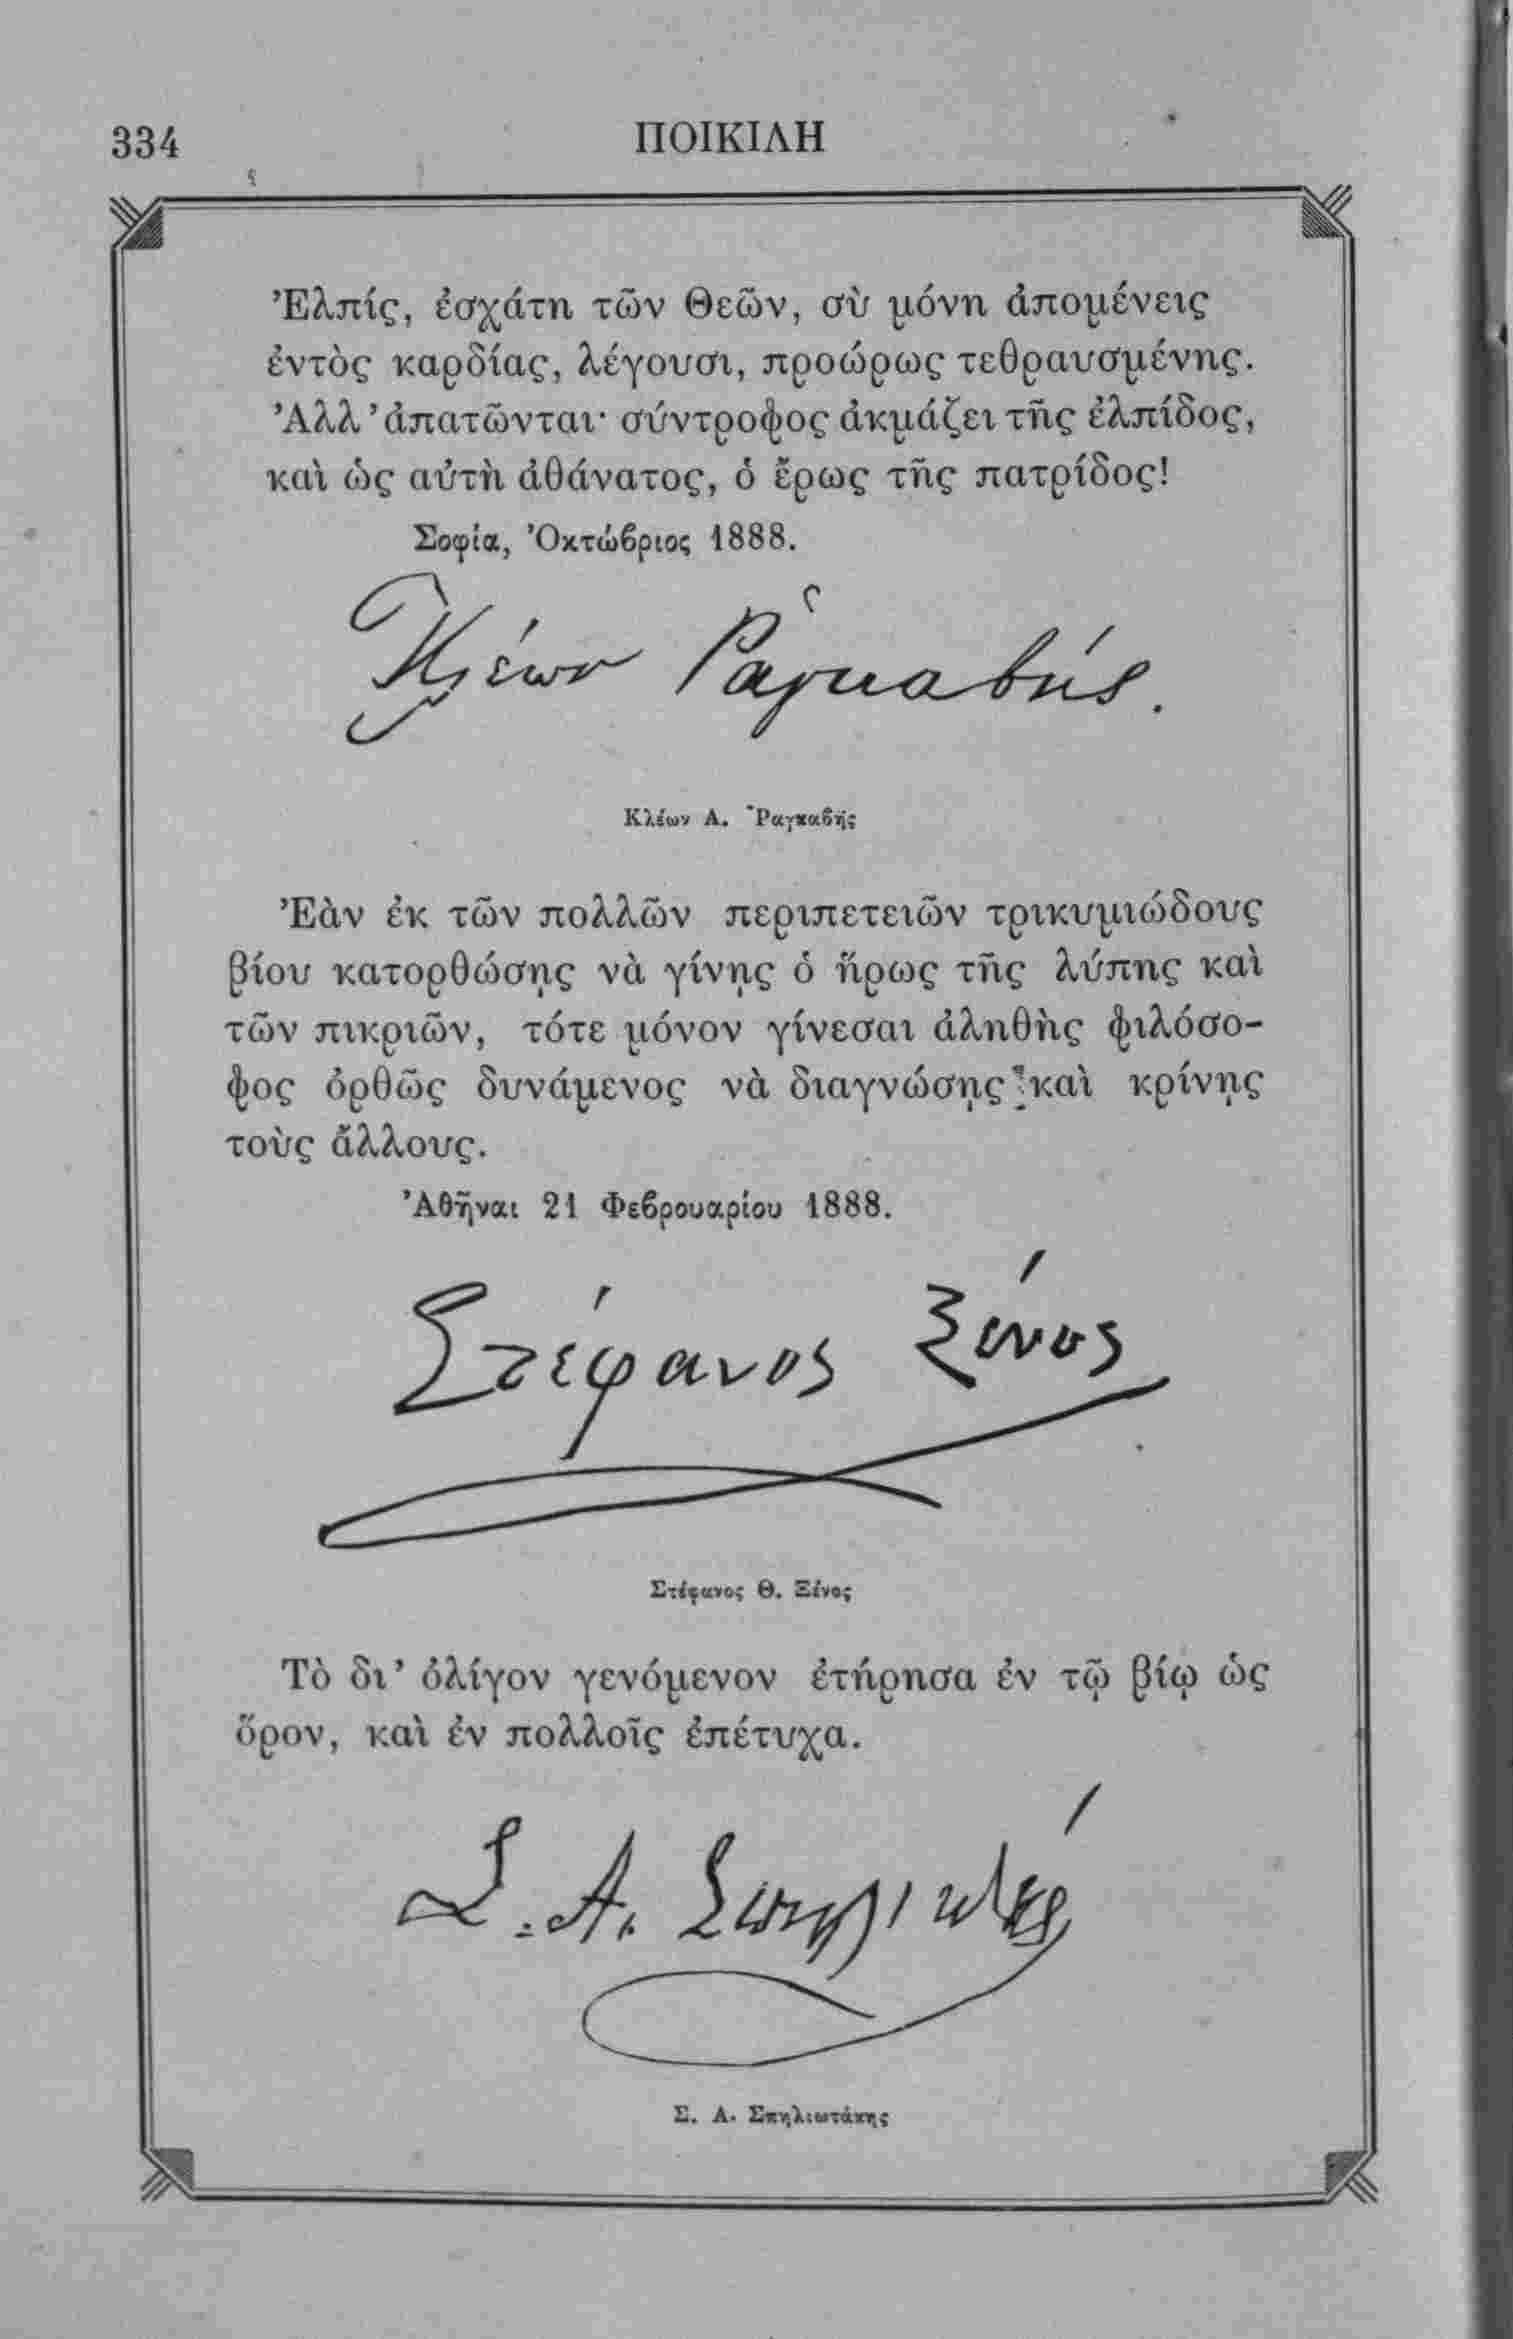 334
ΠΟΙΚΙΛΗ
Ἐλπίς, ἐσχάτη τῶν Θεῶν, σὺ μόνη ἀπομένεις
ἐντὸς καρδίας, λέγουσι, προώρως τεθραυσμένης.
Ἀλλ’ ἀπατῶνται· σύντροφος ἀκμάζει τῆς ἐλπίδος,
καὶ ὡς αὐτὴ ἀθάνατος, ὁ ἔρως τῆς πατρίδος!
Σοφία, Ὀκτώβριος 1888.
Κλέων Ῥαγκαβής.
Κλέων Α. Ῥαγκαβής
Ἐὰν ἐκ τῶν πολλῶν περιπετειῶν τρικυμιώδους
βίου κατορθώσῃς νὰ γίνῃς ὁ ἥρως τῆς λύπης καὶ
τῶν πικριῶν, τότε μόνον γίνεσαι ἀληθὴς φιλόσο-
φος ὀρθῶς δυνάμενος νὰ διαγνώσῃς καὶ κρίνῃς
τοὺς ἄλλους.
Ἀθῆναι 21 Φεβρουαρίου 1888.
Στέφανος Ξένος
Στέφανος Θ. Ξένος
Τὸ δι’ ὀλίγον γενόμενον ἐτήρησα ἐν τῷ βίῳ ὡς
ὅρον, καὶ ἐν πολλοῖς ἐπέτυχα.
Σ. Α. Σπηλιωτάκης
Σ. Α. Σπηλιωτάκης